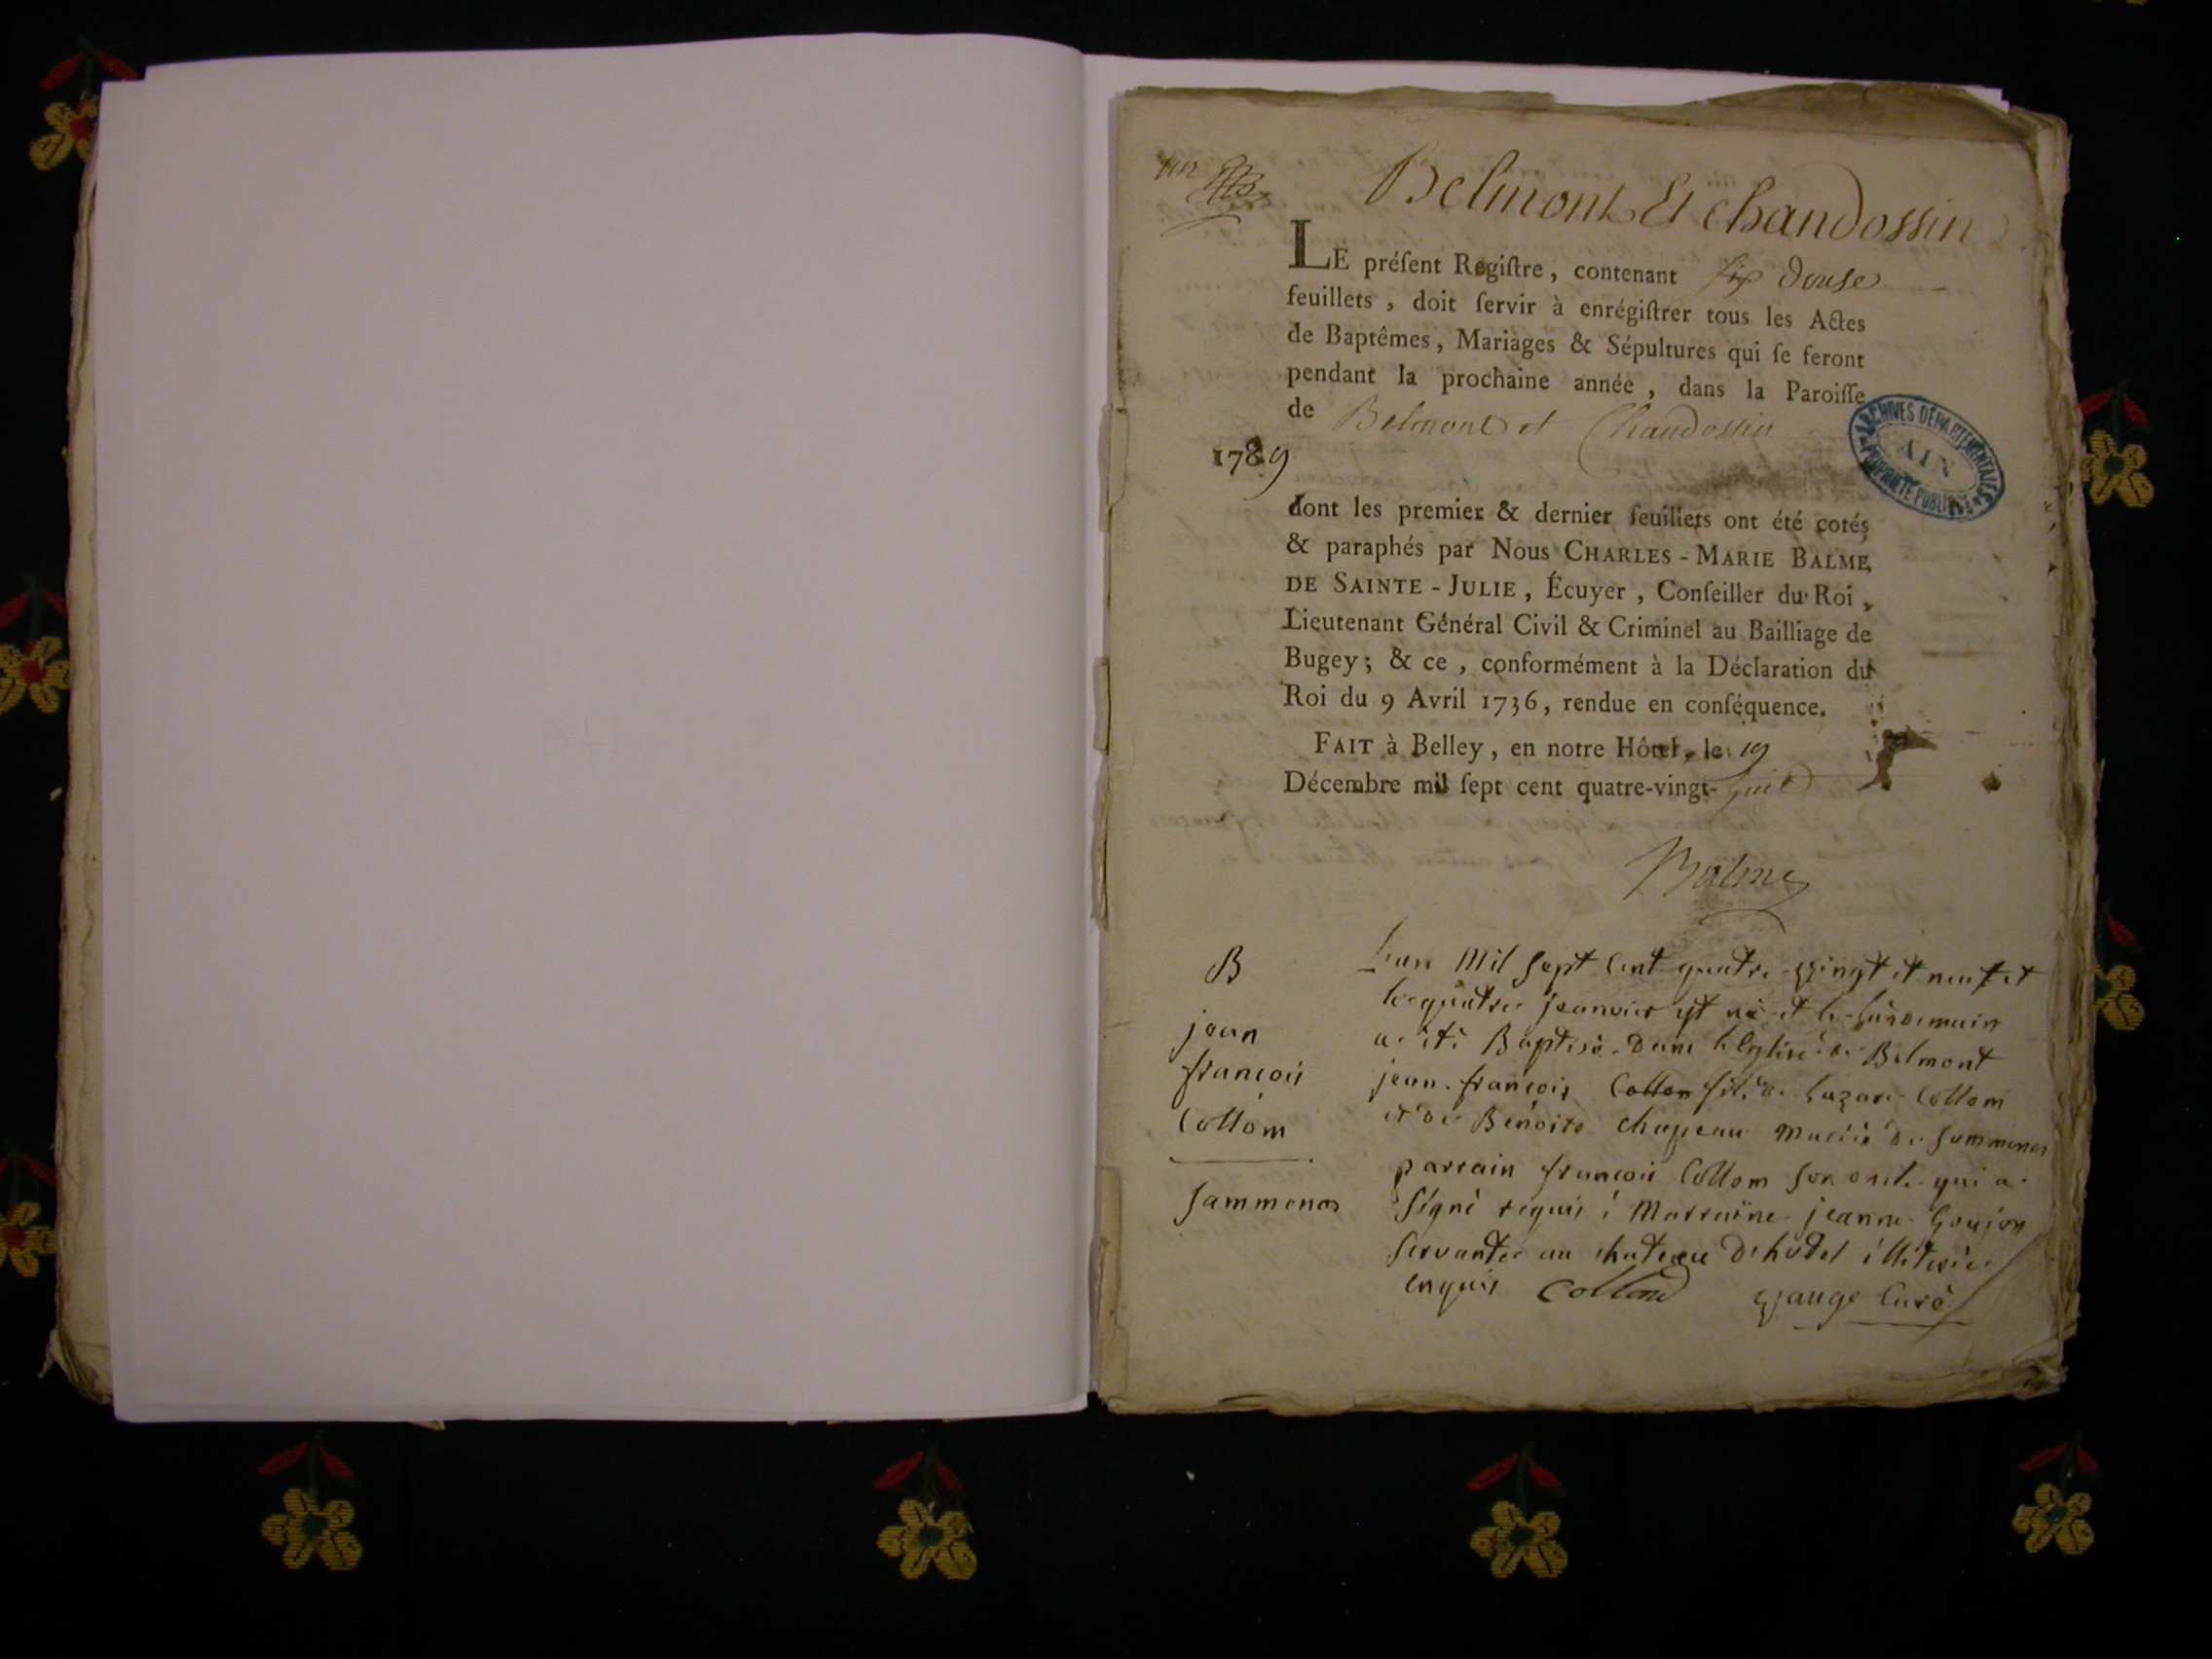 un
Belmont Et chandossin
LE préſent Regiſtre, contenant six douse
feuillets, doit ſervir à enrégiſtrer tous les Actes
de Baptêmes, Mariages & Sépultures qui ſe feront
pendant la prochaine année, dans la Paroiſſe
de Belmont et Chandossin
1789
dont les premier & dernier feuillets ont été cotés
& paraphés par Nous CHARLES-MARIE BALME
DE SAINTE-JULIE, Écuyer, Conſeiller du Roi,
Lieutenant Général Civil & Criminel au Bailliage de
Bugey; & ce, conformément à la Déclaration du
Roi du 9 Avril 1736, rendue en conſéquence.
FAIT à Belley, en notre Hôtel, le 19
Décembre mil ſept cent quatre-vingt-huit
Balme
ARCHIVES DÉPARTEMENTALES
AIN
PROPRIÉTÉ PUBLIQUE
B
jean
francois
Collom
Sammenas
L'an Mil Sept Cent quatre vingt et neuf et
le quatre jeanvier est né et le lendemain
a été Baptisé dans l'eglise de Belmont
jean-françois Collon fils de Lazare Collom
et de Benoite chapeau mariés de Sammenas
parrain francois Collom son oncle qui a
Signé requis i Marraine jeanne Goujon
servante au chateau d'hostel illiterée
enquis Collond vauge Curé